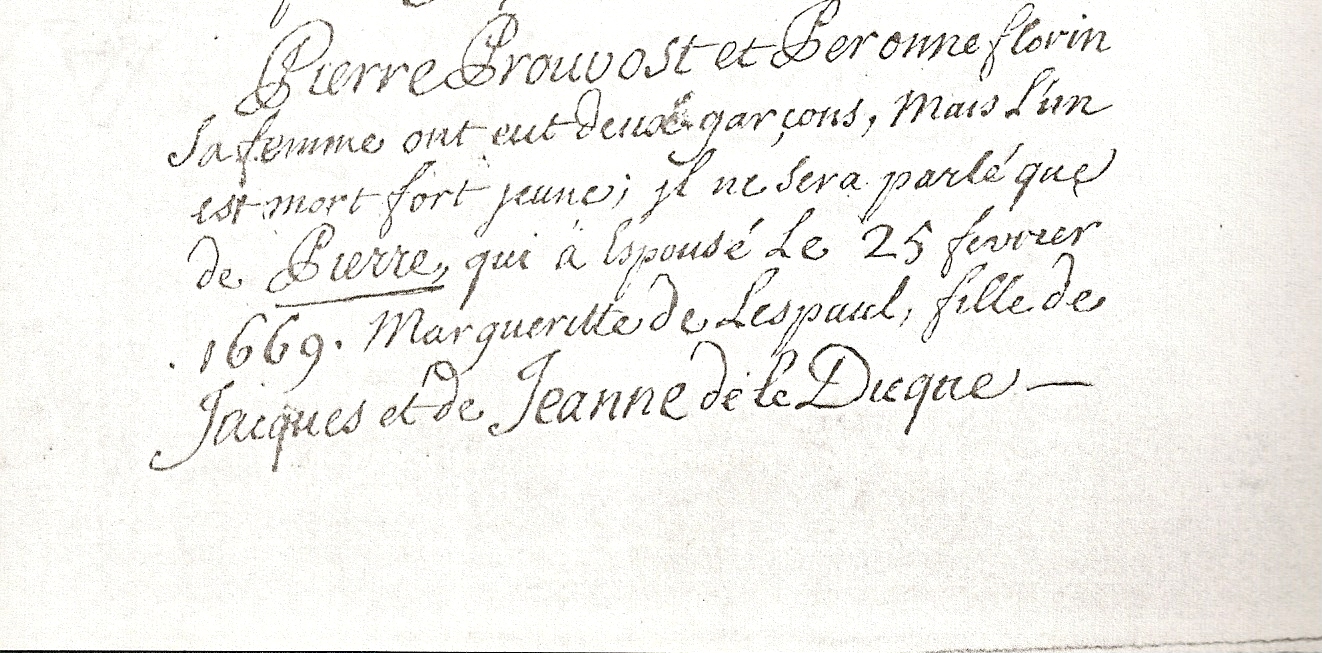 Pierre Prouvost et Peronne florin
Sa femme ont eut deux garçons, Mais L'un
est mort fort jeune; jl ne Sera parlé que
de Pierre, qui à Espousé Le 25 fevrier
1669. Margueritte de Lespaul, fille de
Jacques et de Jeanne de le Dicque —